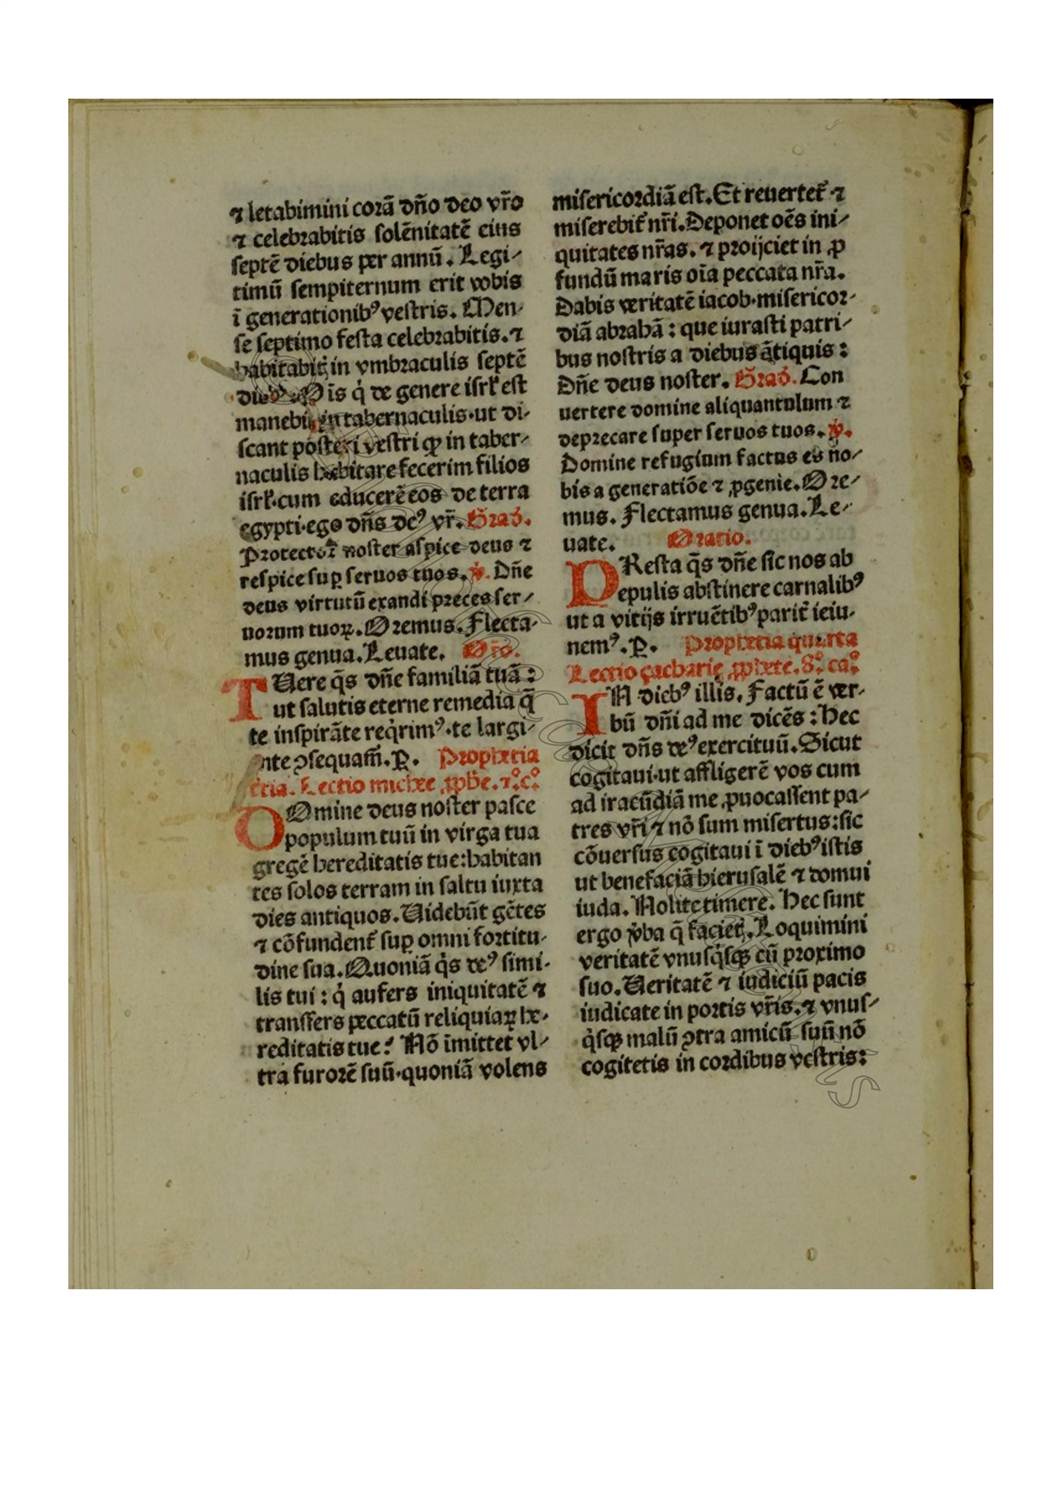 ⁊ letabimini corā dño deo vr̃o
⁊ celebrabitis solēnitatē eius
septē diebus per annū. Legi⸗
timū sempiternum erit vobis
ī generationibꝰ vestris. Men⸗
se septimo festa celebrabitis. ⁊
habitabitꝭ in vmbraculis septē
Oīs q̇ de genere isrl̓ est
manebit in tabernaculis·ut di⸗
scant posteri vestri ꝙ in taber⸗
naculis habitare fecerim filios
isrl̓·cum educerē eos de terra
egypti·ego dñs deꝰ vr̃. Grad̃.
Protector noster aspice deus ⁊
respice sup̱ seruos tuos. ℣. Dñe
deus virtutū exaudi preces ser⸗
uorum tuoꝝ. Oremus. Flecta⸗
mus genua. Leuate. Oro.
TUere q̄s dñe familiā tuā :
ut salutis eterne remedia q̄
te inspirāte req̇rimꝰ·te largi⸗
ente ꝯsequam̃. P. Prophetia
tertia. Lectio michee ꝓphe. 7°. c°.
DOmine deus noster pasce
populum tuū in virga tua
gregē hereditatis tue: habitan
tes solos terram in saltu iuxta
dies antiquos. Uidebūt gētes
⁊ cōfundent̃ sup̱ omni fortitu⸗
dine sua. Quoniā q̇s deꝰ simi⸗
lis tui : q̇ aufers iniquitatē ⁊
transfers peccatū reliquiaꝝ he⸗
reditatis tue? Nō īmittet vl⸗
tra furorē suū·quoniā volens
misericordiā est. Et reuertet̃ ⁊
miserebit̃ nr̃i. Deponet oēs ini⸗
quitates nr̃as. ⁊ proijciet in ꝓ
fundū maris oīa peccata nr̃a.
Dabis veritatē iacob·misericor⸗
diā abrahā : que iurasti patri⸗
bus nostris a diebus ātiquis :
Dñe deus noster. Grad̃. Con
uertere domine aliquantulum ⁊
deprecare super seruos tuos. ℣.
Domine refugium factus es no⸗
bis a generatiōe ⁊ ꝓgenie. Ore⸗
mus. Flectamus genua. Le⸗
uate. Oratio.
PResta q̄s dñe sic nos ab
epulis abstinere carnalibꝰ
ut a vitijs irruētibꝰ parit̃ ieiu⸗
nemꝰ. P. Prophetia quarta
Lectio zacharie ꝓphete. 8°. ca°.
IN diebꝰ illis. Factū ē ver⸗
bū dñi ad me dicēs : Hec
dicit dñs deꝰ exercituū. Sicut
cogitaui·ut affligerē vos cum
ad iracūdiā me ꝓuocassent pa⸗
tres vr̃i ⁊ nō sum misertus: sic
cōuersus cogitaui ī diebꝰ istis
ut benefaciā hierusalē ⁊ domui
iuda. Nolite timere. Hec sunt
ergo v̓ba q̄ facietꝭ. Loquimini
veritatē vnusq̇sꝙ cū proximo
suo. Ueritatē ⁊ iudiciū pacis
iudicate in portis vr̃is. ⁊ vnus⸗
q̇sꝙ malū ꝯtra amicū suū nō
cogitetis in cordibus vestris: